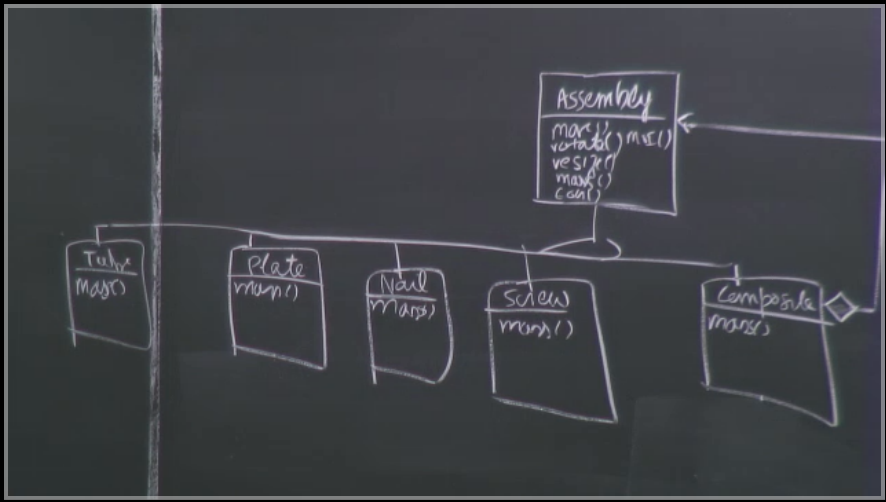 Assembly
move()
rotate() MOI()
resize()
mass()
com()
Tube
mass()
Plate
mass()
Nail
mass()
Screw
mass()
Composite
mass()